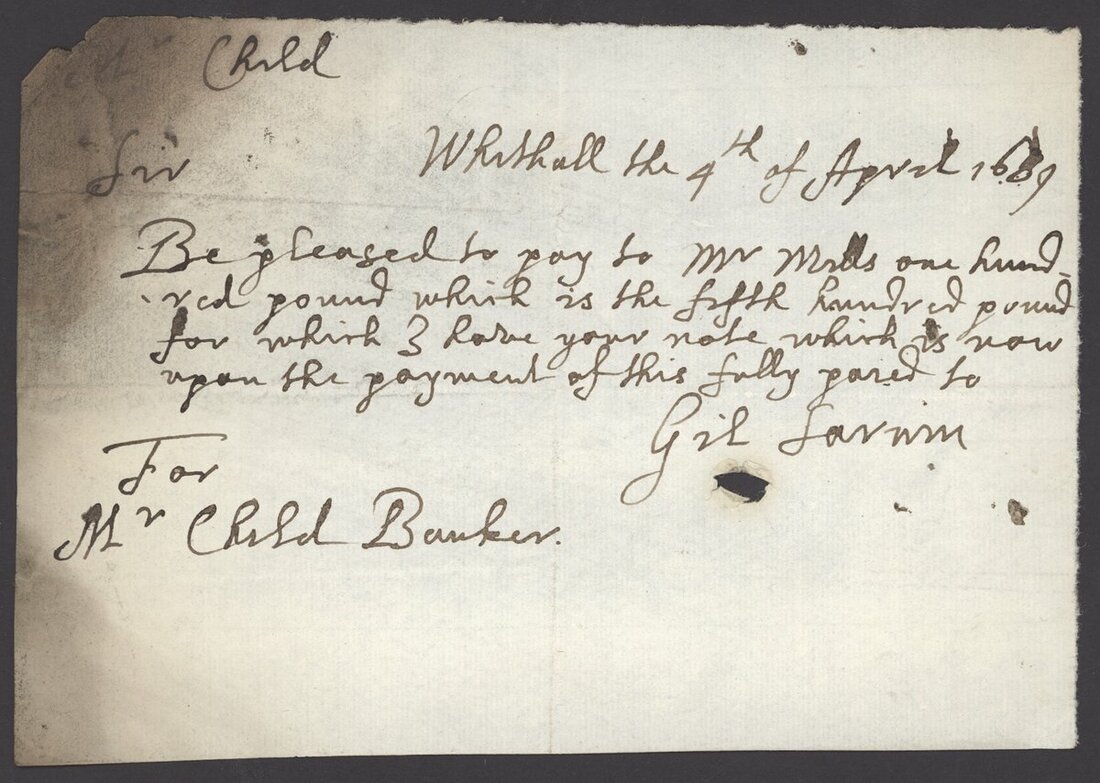 Mr Child
Sir Whithall the 4th of April 1689
Be pleased to pay to Mr Mills one hund-
red pound which is the fifth hundred pound
for which I have your note which is now
upon the payment of this fully payed to
Gil Sarum
For
Mr Child Banker.